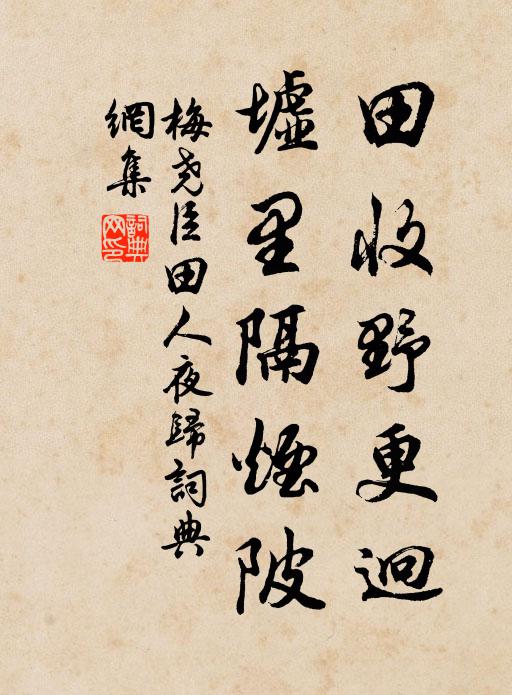 田收野更迥
墟里隔煙陂
梅尧臣田人夜歸詞典
網集
詞典
网印